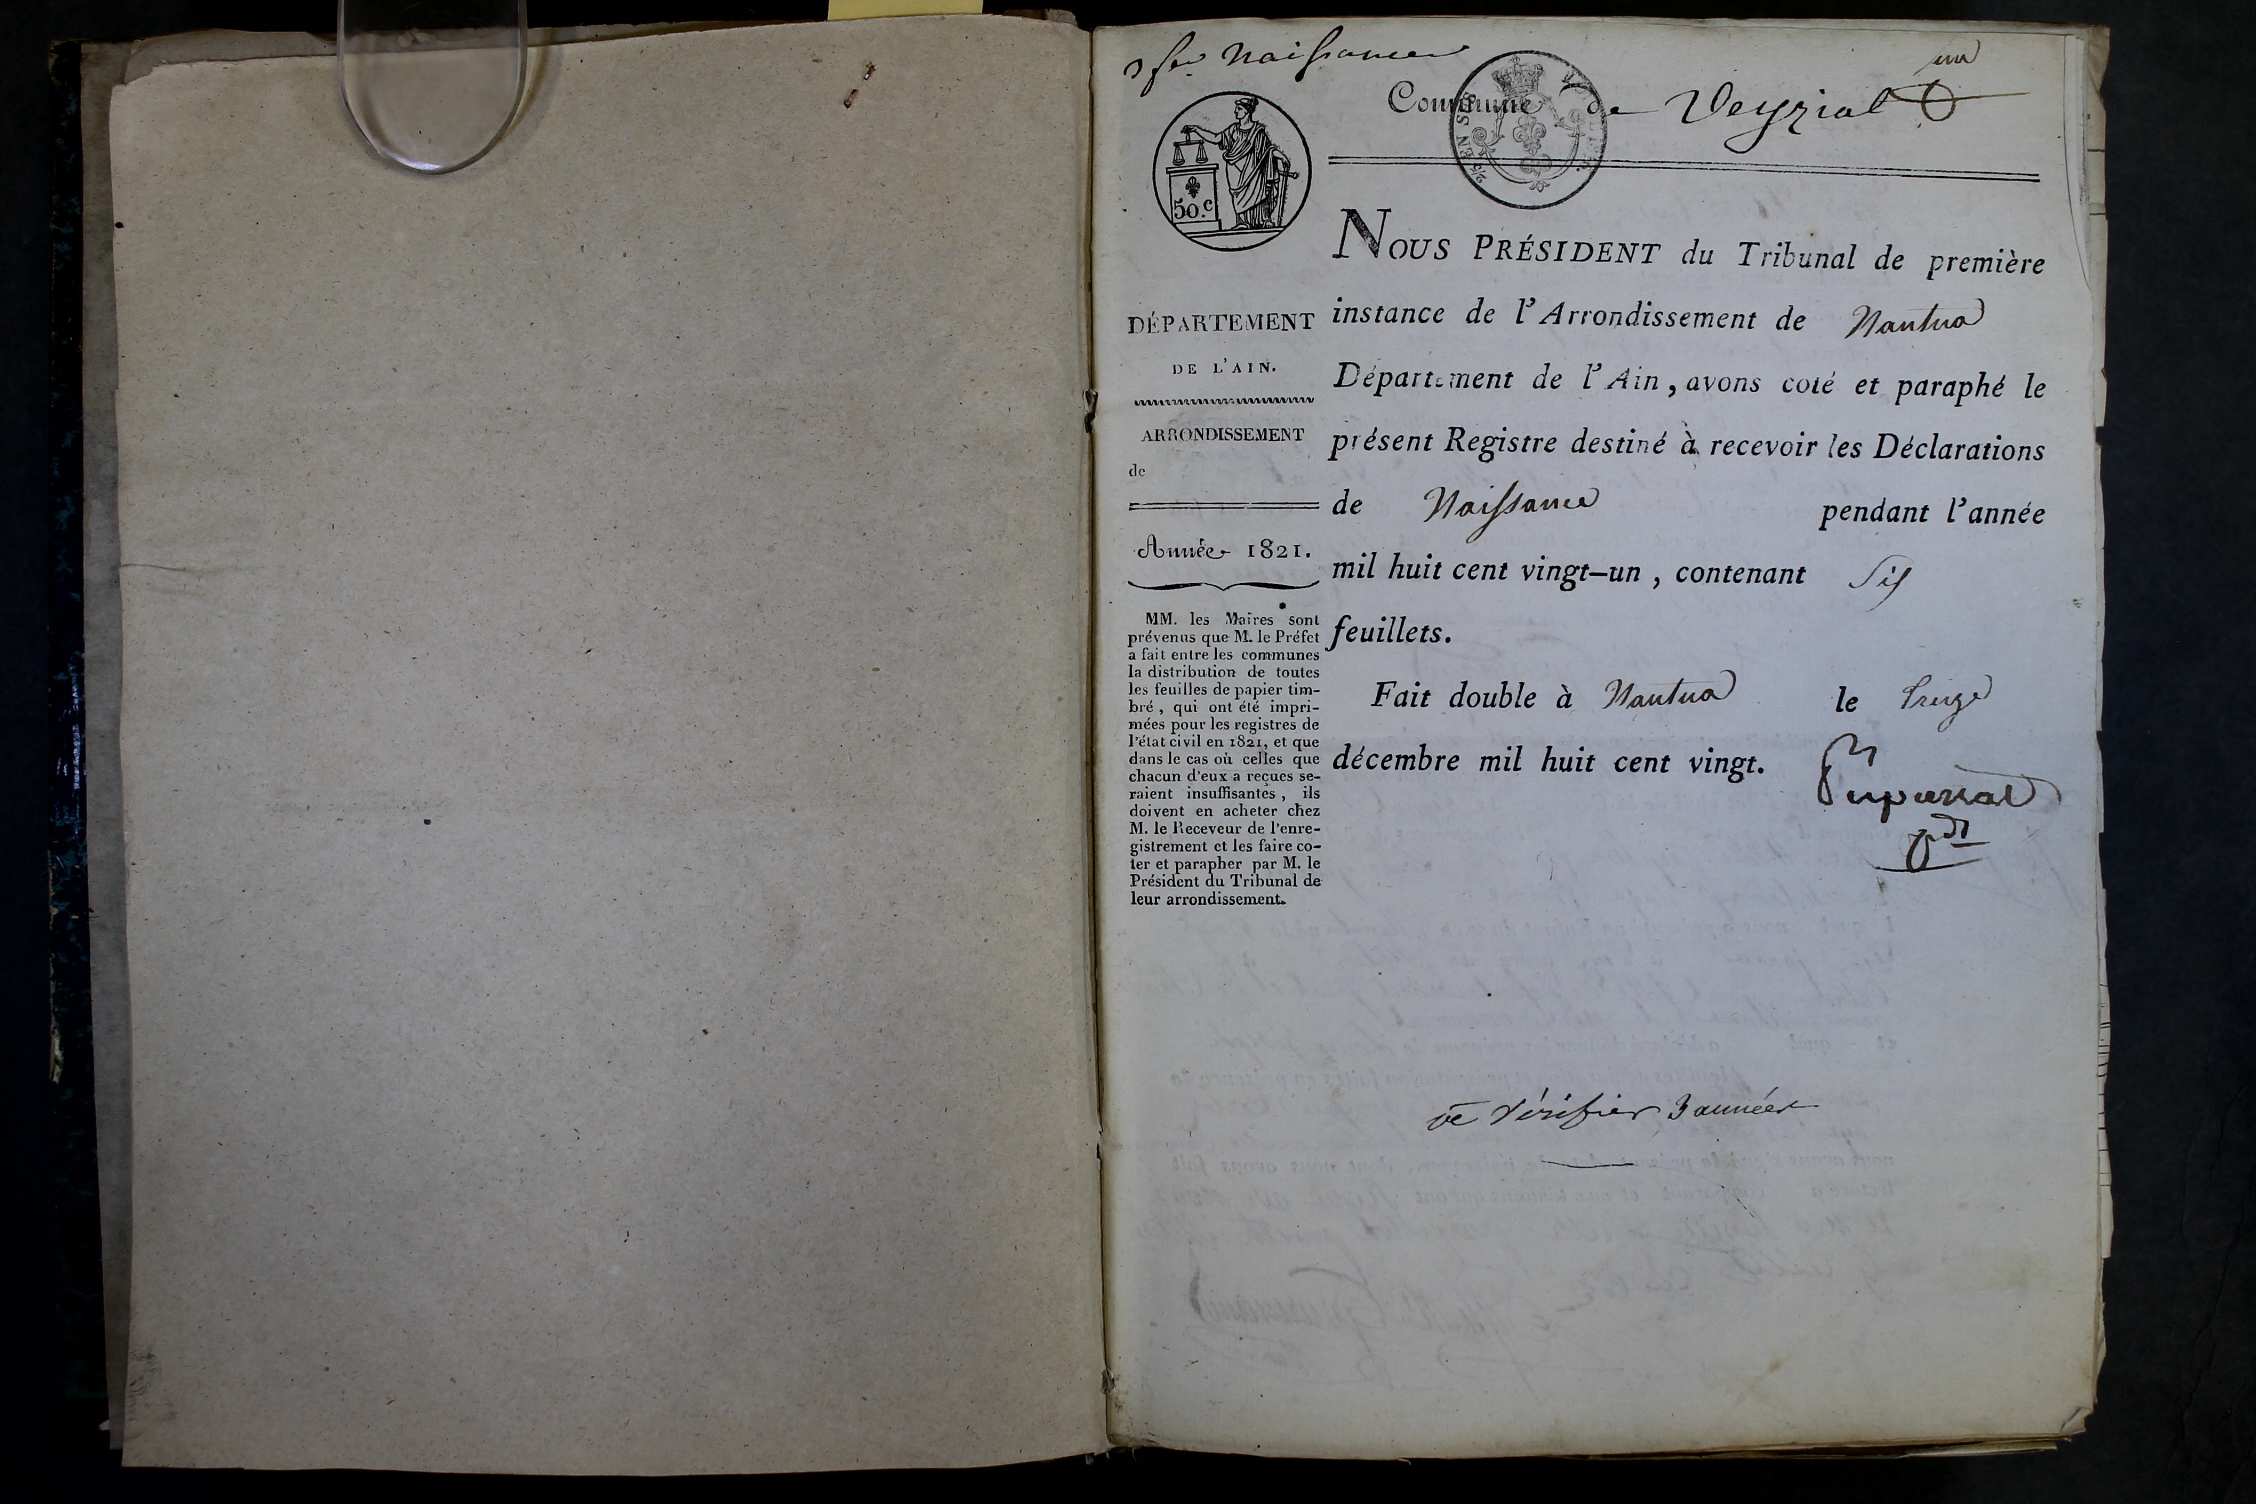 Naissances
un
Commune de Veyziat
EN SUS
50.c
NOUS PRÉSIDENT du Tribunal de première
instance de l'Arrondissement de Nantua
Département de l'Ain, avons coté et paraphé le
présent Registre destiné à recevoir les Déclarations
de Naissance pendant l'année
mil huit cent vingt-un, contenant Six
feuillets.
Fait double à Nantua le treize
décembre mil huit cent vingt.
pdt
DÉPARTEMENT
DE L'AIN.
ARRONDISSEMENT
de
Année 1821.
MM. les Maires sont
prévenus que M. le Préfet
a fait entre les communes
la distribution de toutes
les feuilles de papier tim-
bré, qui ont été impri-
mées pour les registres de
l'état civil en 1821, et que
dans le cas où celles que
chacun d'eux a reçues se-
raient insuffisantes, ils
doivent en acheter chez
M. le Receveur de l'enre-
gistrement et les faire co-
ter et parapher par M. le
Président du Tribunal de
leur arrondissement.
Vérifier 3 années